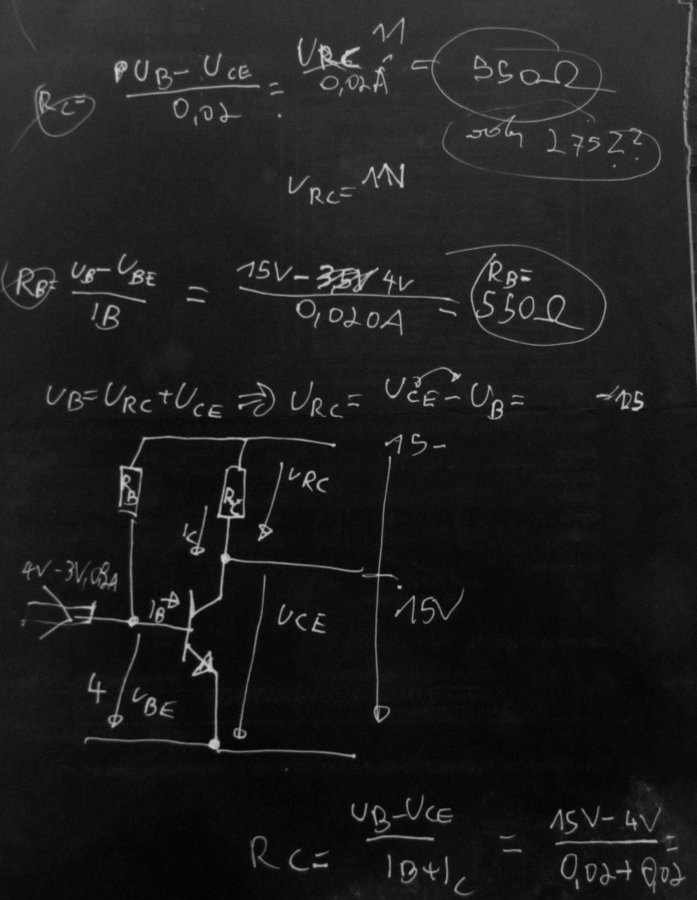 RC= UB - UCE / 0,02 = URC 11 / 0,02A = 550Ω
275??
URC= 11V
RB= UB - UBE / IB = 15V - 3,5V 4V / 0,020A = RB= 550Ω
UB=URC+UCE ⇒ URC= UCE - UB=
15-
RB
RC
URC
IC
4V-3V,
IB
UCE
15V
4
UBE
RC= UB-UCE / IB+IC = 15V-4V / 0,02+0,02 =